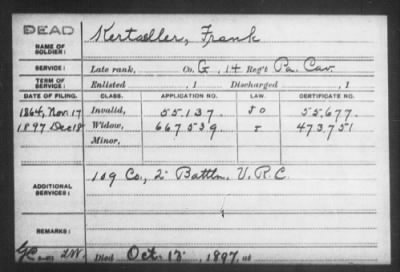 DEAD
NAME OF SOLDIER: Kertseller, Frank
SERVICE: Late rank, Co. G, 14 Reg't Pa. Cav.
TERM OF SERVICE: Enlisted , 1 Discharged , 1
DATE OF FILING. CLASS. APPLICATION NO. LAW. CERTIFICATE NO.
1864, Nov. 17 Invalid, 55.137. 55.677.
1897 Dec 18 Widow, 667539. 473.751
Minor,
ADDITIONAL SERVICES: 109 Co., 2" Battln. V.R.C.
REMARKS:
Died Oct. 12, 1897, at